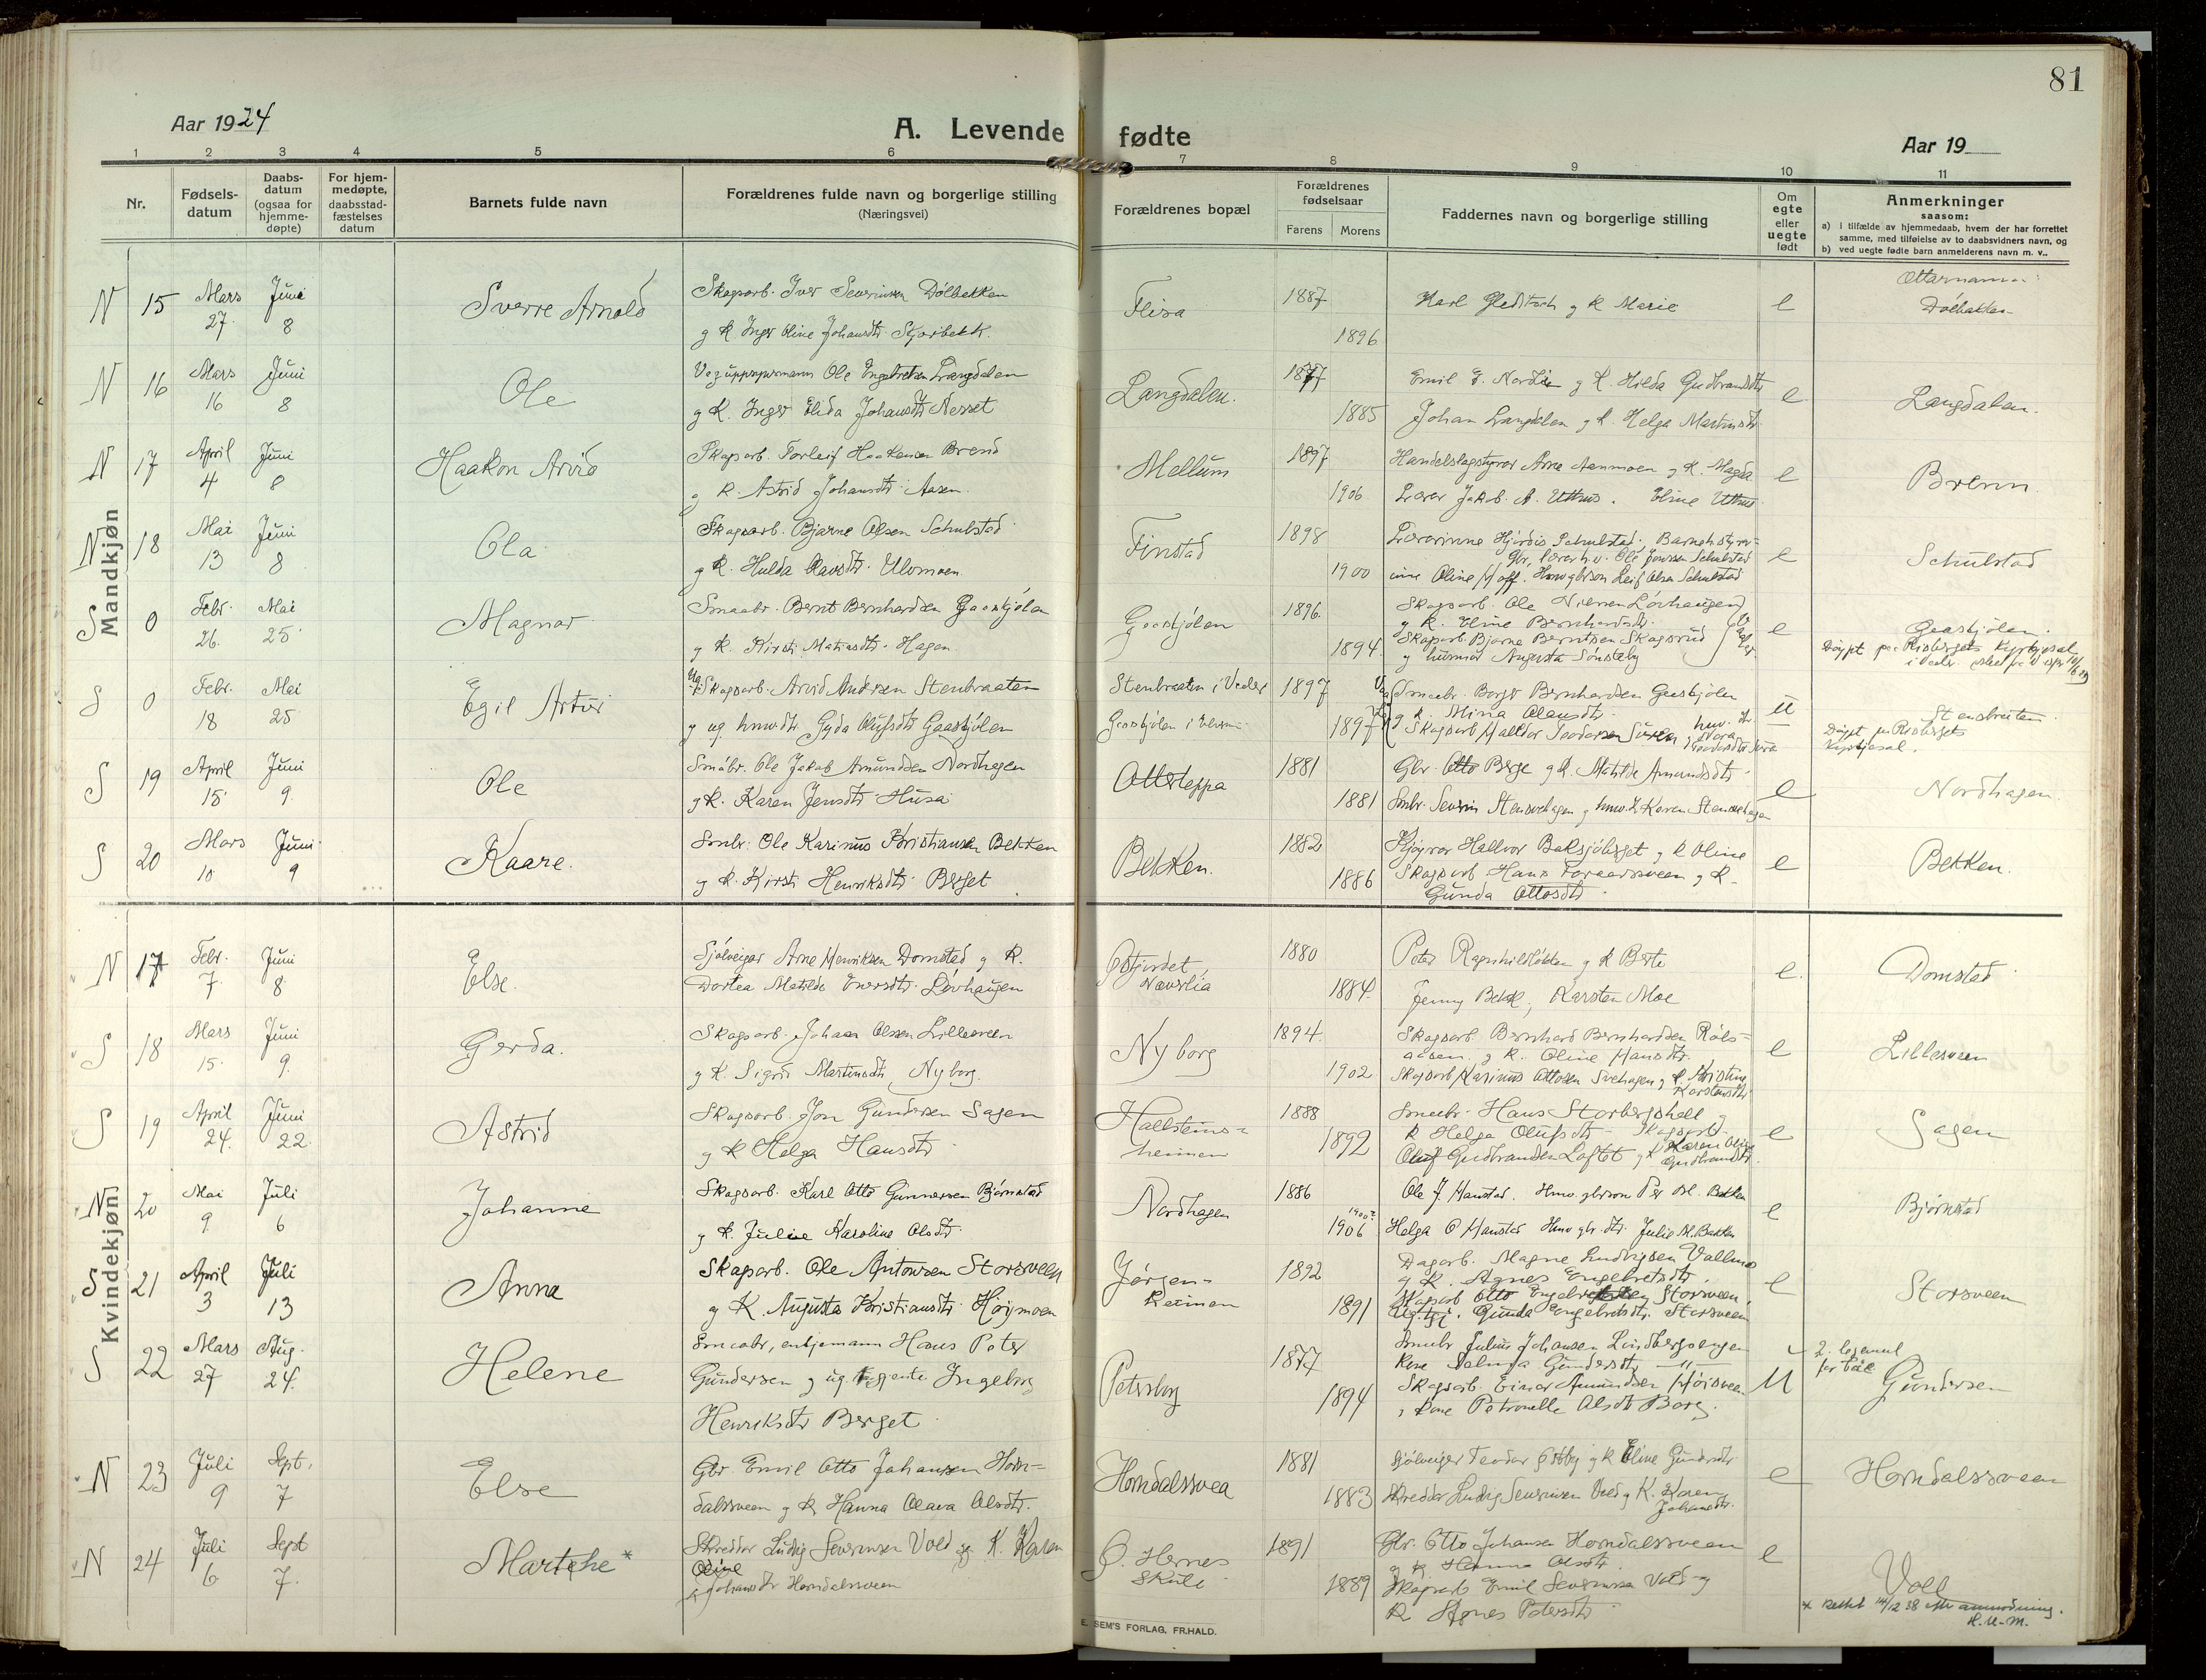 81
Aar 1924
A. Levende fødte
Aar 19
1 2 3 4 5 6 7 8 9 10 11
Nr.
Fødsels-
datum
Daabs-
datum
(ogsaa for
hjemme-
døpte)
For hjem-
medøpte,
daabsstad-
fæstelses
datum
Barnets fulde navn
Forældrenes fulde navn og borgerlige stilling
(Næringsvei)
Forældrenes bopæl
Forældrenes
fødselsaar
Farens Morens
Faddernes navn og borgerlige stilling
Om
egte
eller
uegte
født
Anmerkninger
saasom:
a) i tilfælde av hjemmedaab, hvem der har forrettet
samme, med tilføielse av to daabsvidners navn, og
b) ved uegte fødte barn anmelderens navn m. v..
Mandkjøn
N 15 Mars 27. Juni 8 Sverre Arnold
Skogsarb. Iver Severinsen Dölbekken
g K. Inger Oline Johansdtr. Skjærbekk.
Flisa 1887 1896
Karl Gleditsch g K Marie
e Dölbekken
N 16 Mars 16 Juni 8 Ole
Veguppsynsmann Ole Engebretsen Langdalen
g K. Inger Elida Johansdtr Nesset
Langdalen. 1877 1885
Emil E. Nordlien g K. Hilda Gudbrandsdtr
Johan Langdalen g K. Helga Martinsdtr
e Langdalen.
N 17 April 4 Juni 8 Haakon Arvid
Skogsarb. Torleif Haakensen Brend
g K. Astrid Johansdtr. Aasen.
Mellum 1897 1906
Handelslagstyrer Arne Aanmoen g K. Magda
Lærer Jakob A. Uthus. Eline Uthus
e Brenn
N 18 Mai 13 Juni 8 Ola
Skogsarb. Bjarne Olsen Schulstad
g K. Hulda Olavsdtr. Ulvmoen
Finstad 1898 1900
Lærerinne Hjördis Schulstad, Barneh.styre-
Gbr. Ole Jonssen Schulstad
inne Oline Hoff. Leif Olsen Schulstad
e Schulstad
S 0 Febr. 26. Mai 25 Magnar
Smaabr. Bernt Bernhardsen Gaaskjölen
g K. Kirsti Matiasdtr. Hagen
Gaaskjölen 1896. 1894
Skogsarb. Ole Nilssen Lövhaugen
g K. Eline Bernhardsdtr.
Skogsarb. Bjarne Berntsen Skogsrud
g husmor Augusta Sönsteby
e Gaaskjölen.
Döypt paa Risbergets Kyrkjesal
S 0 Febr. 18 Mai 25 Egil Artur
Ug. Skogsarb. Arvid Andersen Stenbraaten
g ug. hmvdtr Gyda Olufsdtr Gaaskjölen
Stenbraaten i Våler
Gaaskjölen i Elverum
1897 1897
Smaabr. Borger Bernhardsen Gaaskjölen
g K. Mina Olausdtr.
Skogsarb Halldor Teodorsen
U Stenbraaten
Döypt paa Risbergets
Kyrkjesal.
S 19 April 15 Juni 9. Ole
Småbr. Ole Jakob Amundsen Nordhagen
g K. Karen Jensdtr. Husa
Otterteppa 1881 1881
Gbr. Otto Berge g K. Matilde Amundsdtr.
Smbr. Severin Stensvehagen g Karen Stensvehagen
e Nordhagen
S 20 Mars 10 Juni 9 Kaare.
Smbr. Ole Karinius Kristiansen Bekken
g K. Kirsti Henriksdtr. Berget
Bekken. 1882 1886
Hallvor Baksjöberget g K Oline
Skogsarb Hans g K.
Gunda Ottosdtr
e Bekken.
Kvindekjøn
N 17 Febr. 7. Juni 8. Else.
Sjölveigar Arne Henriksen Domstad g K.
Dortea Matilde Enersdtr. Lövhaugen
Östjordet, Nævrlia 1880 1884.
Peter Ragnhildsløkken g K Berte
Jenny Bekk, Karsten Moe
e. Domstad
S 18 Mars 15. Juni 9. Gerda.
Skogsarb. Johan Olsen Lillesveen
g K. Sigrid Martinsdtr, Nyborg.
Nyborg 1894. 1902
Skogsarb. Bernhard Bernhardsen Rols-
aasen g K. Oline Hansdtr.
Skogsarb Karinus Ottosen Svehagen g K. Kristine
Karstensdtr.
e Lillesveen
S 19 April 24. Juni 22. Astrid
Skogsarb. Jon Gundersen Sagen
g K Helga Hansdtr
Hallsteins-
heimen 1888 1892
Smaabr. Hans Storbergshell g
K Helga Olufsdtr. Skogsarb.
Oluf Gudbrandsen Loftet g K Karen Oline
Gudbrandsdtr.
e Sagen
N 20 Mai 9. Juli 6 Johanne
Skogsarb. Karl Otto Gunnersen Björnstad
g K. Julie Karoline Olsdtr.
Nordhagen 1886 1900? 1906
Ole J. Hanstad. Hmv gbrson Per M. Bekken
Helga O Hanstad Hmv gbr. dtr. Julie M. Bekken
e Björnstad
S 21 April 3 Juli 13 Anna
Skogsarb. Ole Antonsen Storsveen
g K. Augusta Kristiansdtr. Höymoen
Jørgen-
heimen 1892 1891
Dagarb. Magne Ludvigsen Vallmo
g K. Agnes Engebretsdtr.
Skogsarb Otto Engebretsen Storsveen,
Ug. Gunda Engebretsdtr. Storsveen
e Storsveen
S 22 Mars 27 Aug. 24. Helene
Smaabr, enkjemann Hans Peter
Gundersen g ug. gjente Ingeborg
Henriksdtr Berget
Petersborg 1877 1894
Smabr Julius Johansen Lindbergsengen
Kone Valmga Gundersdtr —"—
Skogsarb. Einar Amundsen Höisveen
g Kone Petronelle Olsdtr Borg.
U 2. legemaal
for båe
Gundersen
N 23 Juli 9 Sept. 7 Else
Gbr. Emil Otto Johansen Horn-
dalssveen g K Hanna Olava Olsdtr.
Horndalssvea 1881 1883
Sjölveiger Teodor Östby g K Eline Gundersdtr
Skredder Ludvig Severinsen Vold g K. Karen
Johansdtr.
e Horndalssveen
N 24 Juli 6 Sept 7. Marthe *
Skreddar Ludvig Severinsen Vold g K. Karen
Oline
Johansdtr Horndalssveen
Ö. Hernes
skule 1891 1889
Gbr. Otto Johansen Horndalssveen
g K Hanna Olsdtr
Skogsarb Emil Severinsen Vold g
K Agnes Petersdtr
e Voll
* Rettet 14/2 38 efter anmodning.
H. U-M.
E. SEM'S FORLAG, FR.HALD.